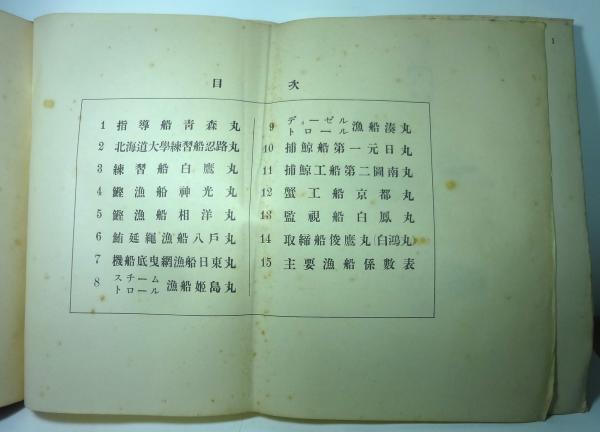 目次
1 指導船青森丸
2 北海道大學練習船忍路丸
3 練習船白鷹丸
4 鰹漁船神光丸
5 鰹漁船相洋丸
6 鮪延繩漁船八戶丸
7 機船底曳網漁船日東丸
8 スチームトロール漁船姬島丸
9 ディーゼルトロール漁船湊丸
10 捕鯨船第一元日丸
11 捕鯨工船第二圖南丸
12 蟹工船京都丸
13 監視船白鳳丸
14 取締船俊鷹丸(白鴻丸)
15 主要漁船係數表
1